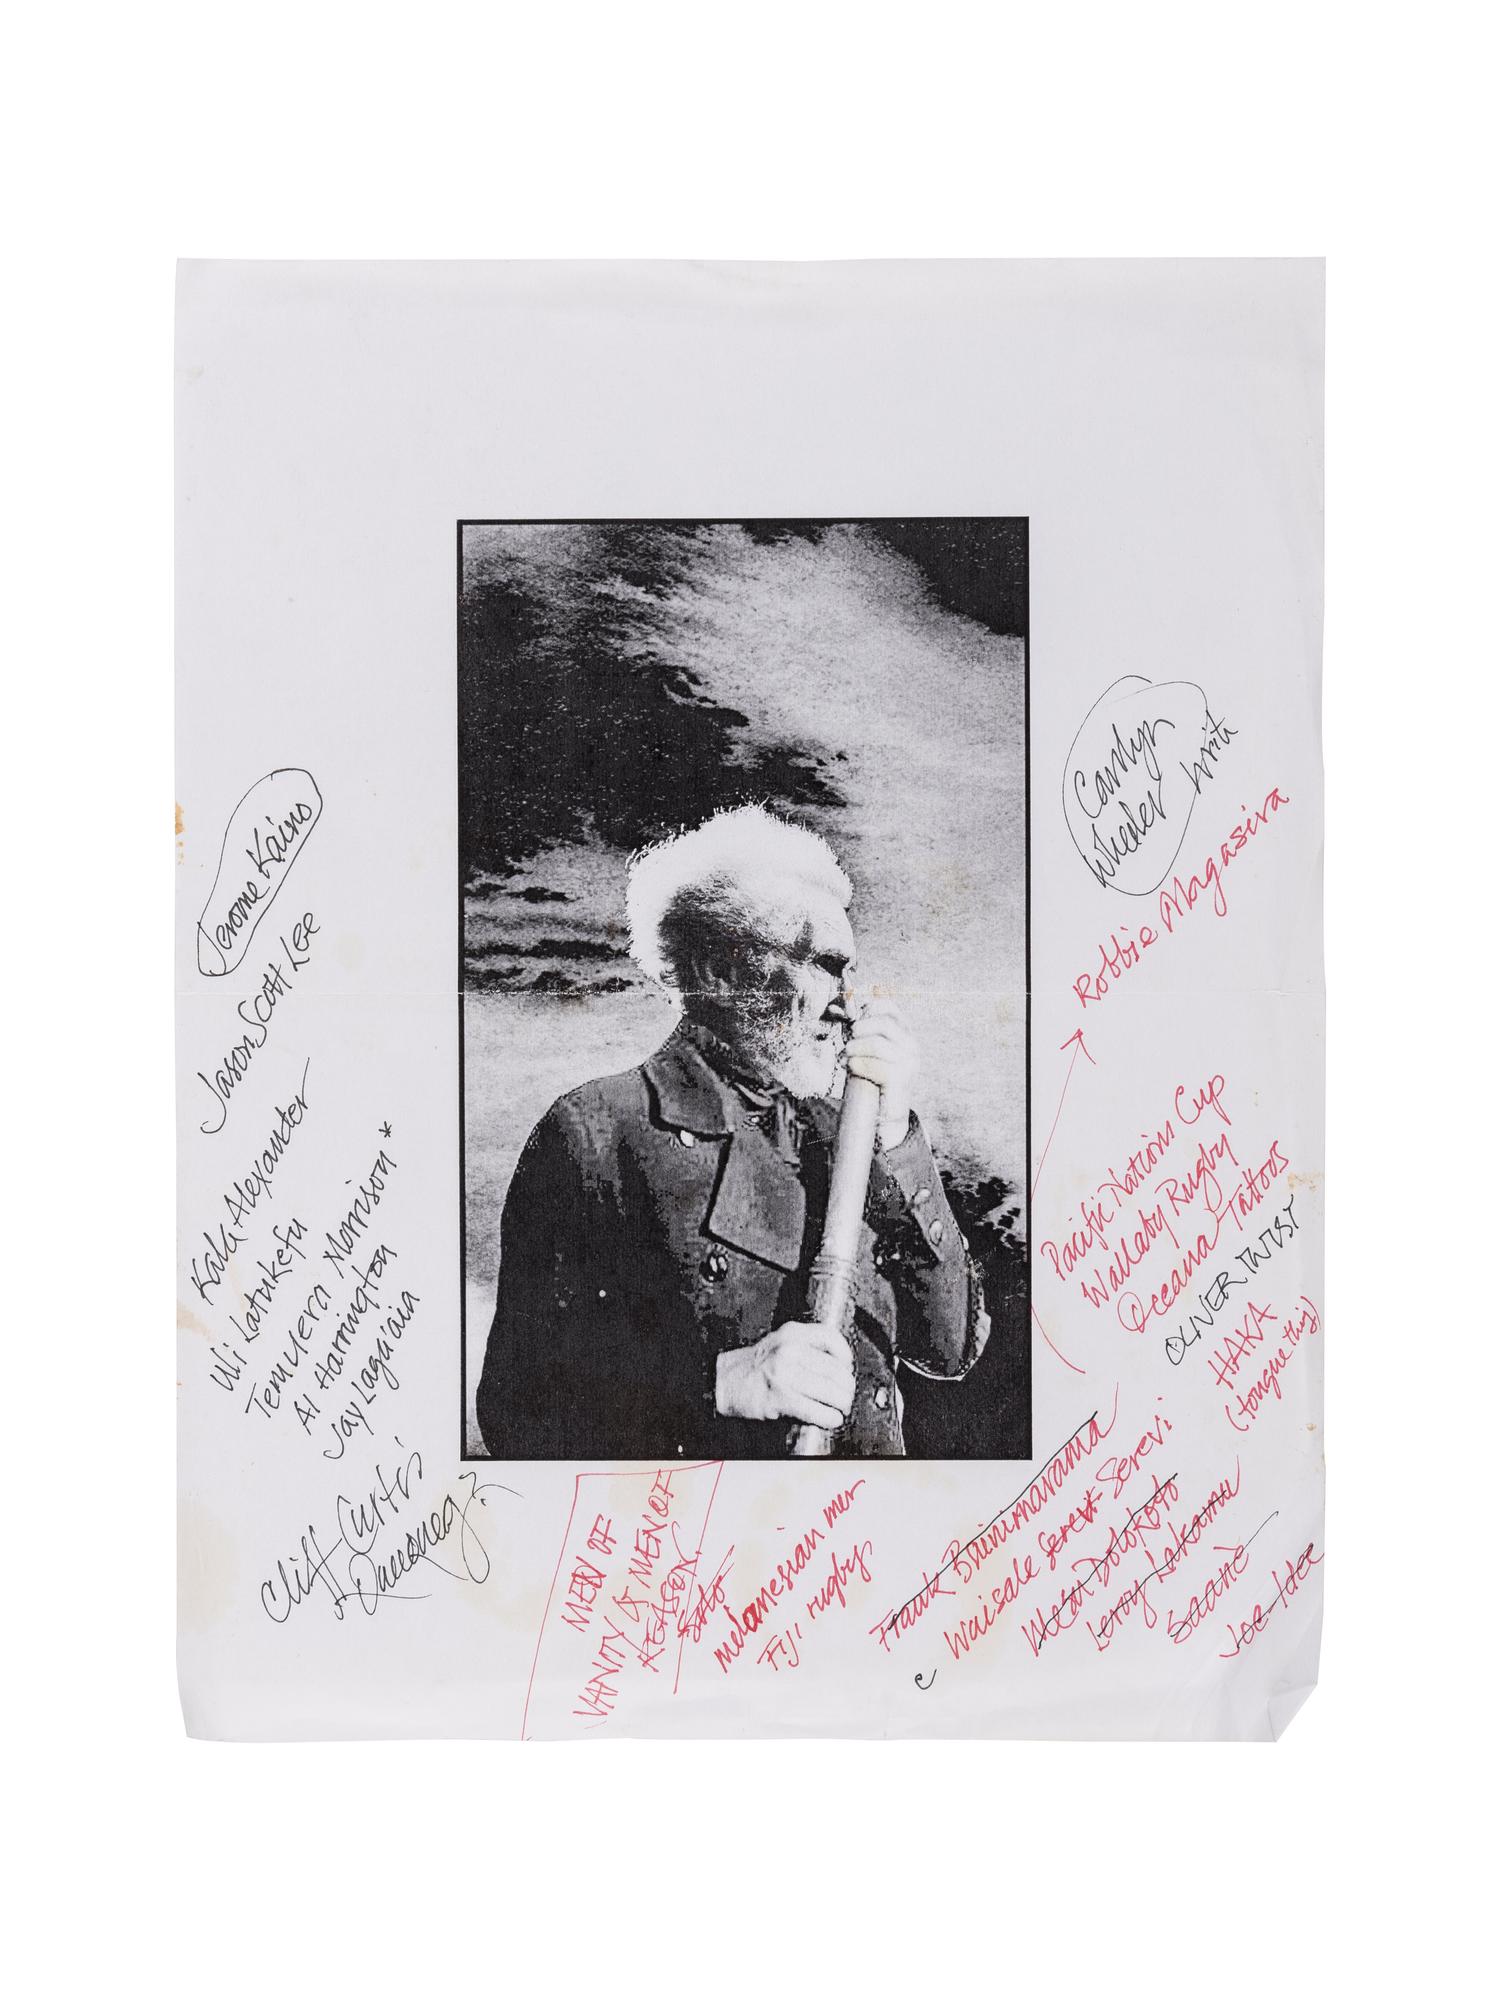 Jerome Kaino
Jason Scott Lee
Kale Alexander
Uli Latukefu
Temuera Morrison *
Al Harrington
Jay Laga'aia
Cliff Curtis
Queequeg?
Carolyn
Wheeler
Robbie Magasiva
Pacific Nations Cup
Wallaby Rugby
Oceana Tattoos
OLIVER TWIST
HAKA
(tongue thing)
MEN OF
VANITY & MEN OF
REASON.
Solo
melanesian men
FIJI rugby
Frank Bainimarama
Waisale Serevi Serevi
Leroy
Joe